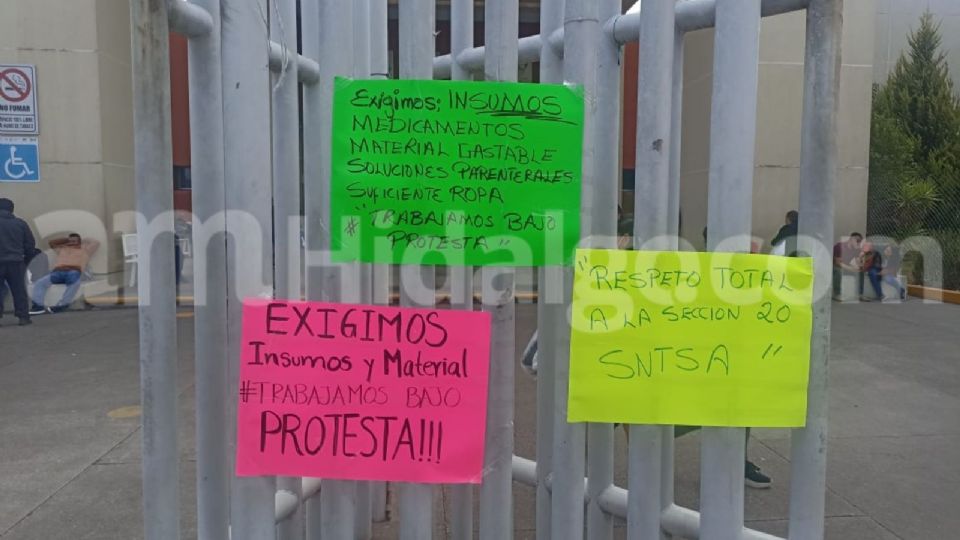 NO FUMAR
Exigimos: INSUMOS
MEDICAMENTOS
MATERIAL GASTABLE
SOLUCIONES PARENTERALES
SUFICIENTE ROPA
# "TRABAJAMOS BAJO
PROTESTA"
EXIGIMOS
Insumos y Material
#TRABAJAMOS BAJO
PROTESTA!!!
"RESPETO TOTAL
A LA SECCION 20
SNTSA"
amHidalgo.com